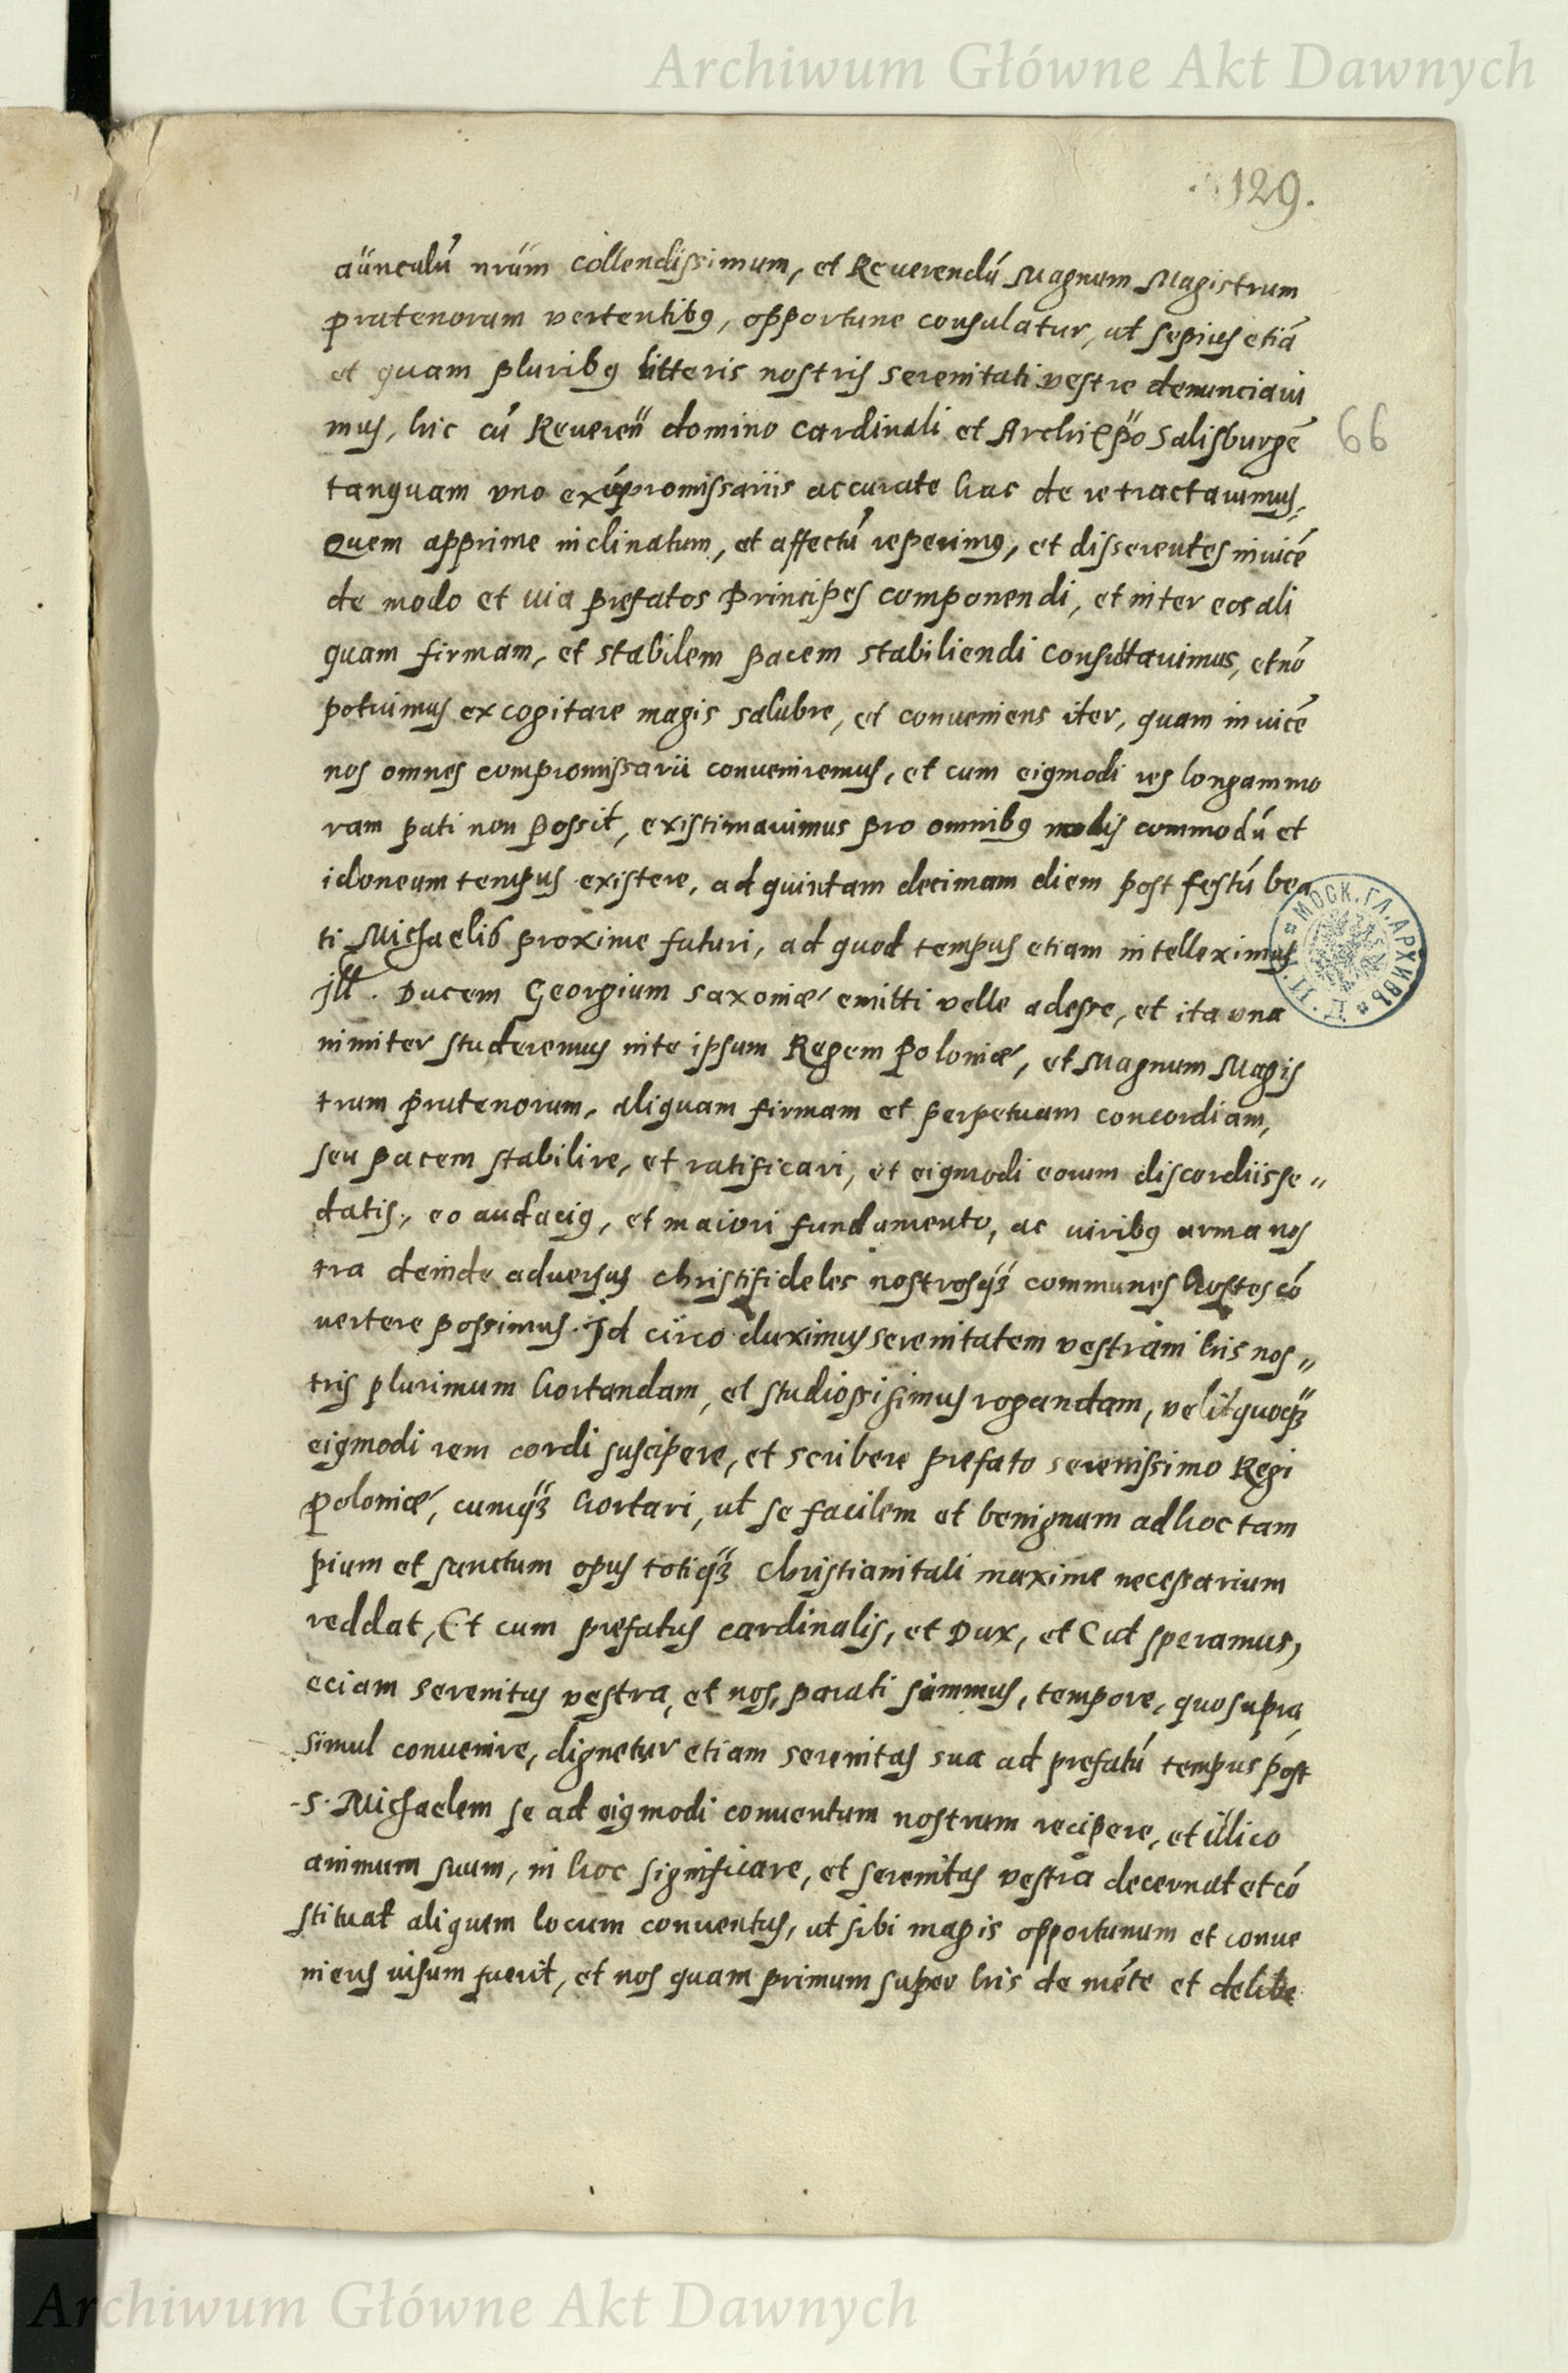 Archiwum Główne Akt Dawnych
129.
aũnculũ nrũm collendissimum, et Reverendũ Magnum Magistrum
prutenorum vertentibꝯ, opportune consulatur, ut sepius etiã
et quam pluribꝯ litteris nostris serenitati vestre denunciavi
mus, hic cũ Reveren̄ domino cardinali et Archiep̄o Salisburgẽ
66
tanquam uno ex cõpromissariis accurate hac de re tractavimus,
Quem apprime inclinatum, et affectũ reperimꝯ, et disserentes invicẽ
de modo et via prefatos Principes componendi, et inter eos ali
quam firmam, et stabilem pacem stabiliendi consultavimus, et nõ
potuimus excogitare magis salubre, et conveniens iter, quam invicẽ
nos omnes compromissarii conveniremus, et cum eiꝯmodi res longam mo
ram pati non possit, existimavimus pro omnibꝯ modis commodũ et
idoneum tempus existere, ad quintam decimam diem post festũ bea
ti Michaelis proxime futuri, ad quod tempus etiam intelleximus
Ill. Ducem Georgium Saxoniæ emitti velle adesse, et ita una
nimiter studeremus inte ipsum Regem Poloniæ, et Magnum Magis
trum prutenorum, aliquam firmam et perpetuam concordiam,
seu pacem stabilire, et ratificari, et eiꝯmodi eorum discordiis se„
datis, eo audaciꝯ, et maiori fundamento, ac viribꝯ arma nos
tra deinde adversus christifideles nostrosqꝫ communes hostes cõ
vertere possimus. Id circo duximus serenitatem vestram his nos„
tris plurimum hortandam, et studiossisimus rogandam, velit quoqꝫ
eiꝯmodi rem cordi suscipere, et scribere prefato serenissimo Regi
Poloniæ, eumqꝫ hortari, ut se facilem et benignum ad hoc tam
pium et sanctum opus totiqꝫ christianitati maxime necessarium
reddat, Et cum prefatus cardinalis, et Dux, et (ut speramus)
eciam serenitas vestra, et nos, parati simmus, tempore, quo supra
simul convenire, dignetur etiam serenitas sua ad prefatũ tempus post
S. Michaelem se ad eiꝯmodi conventum nostrum recipere, et illico
animum suum, in hoc significare, et serenitas vestra decernat et cõ
stituat aliquem locum conventus, ut sibi magis opportunum et conve
niens visum fuerit, et nos quam primum super his de mẽte et delibe
МОСК. ГЛ. АРХИВЪ
Archiwum Główne Akt Dawnych